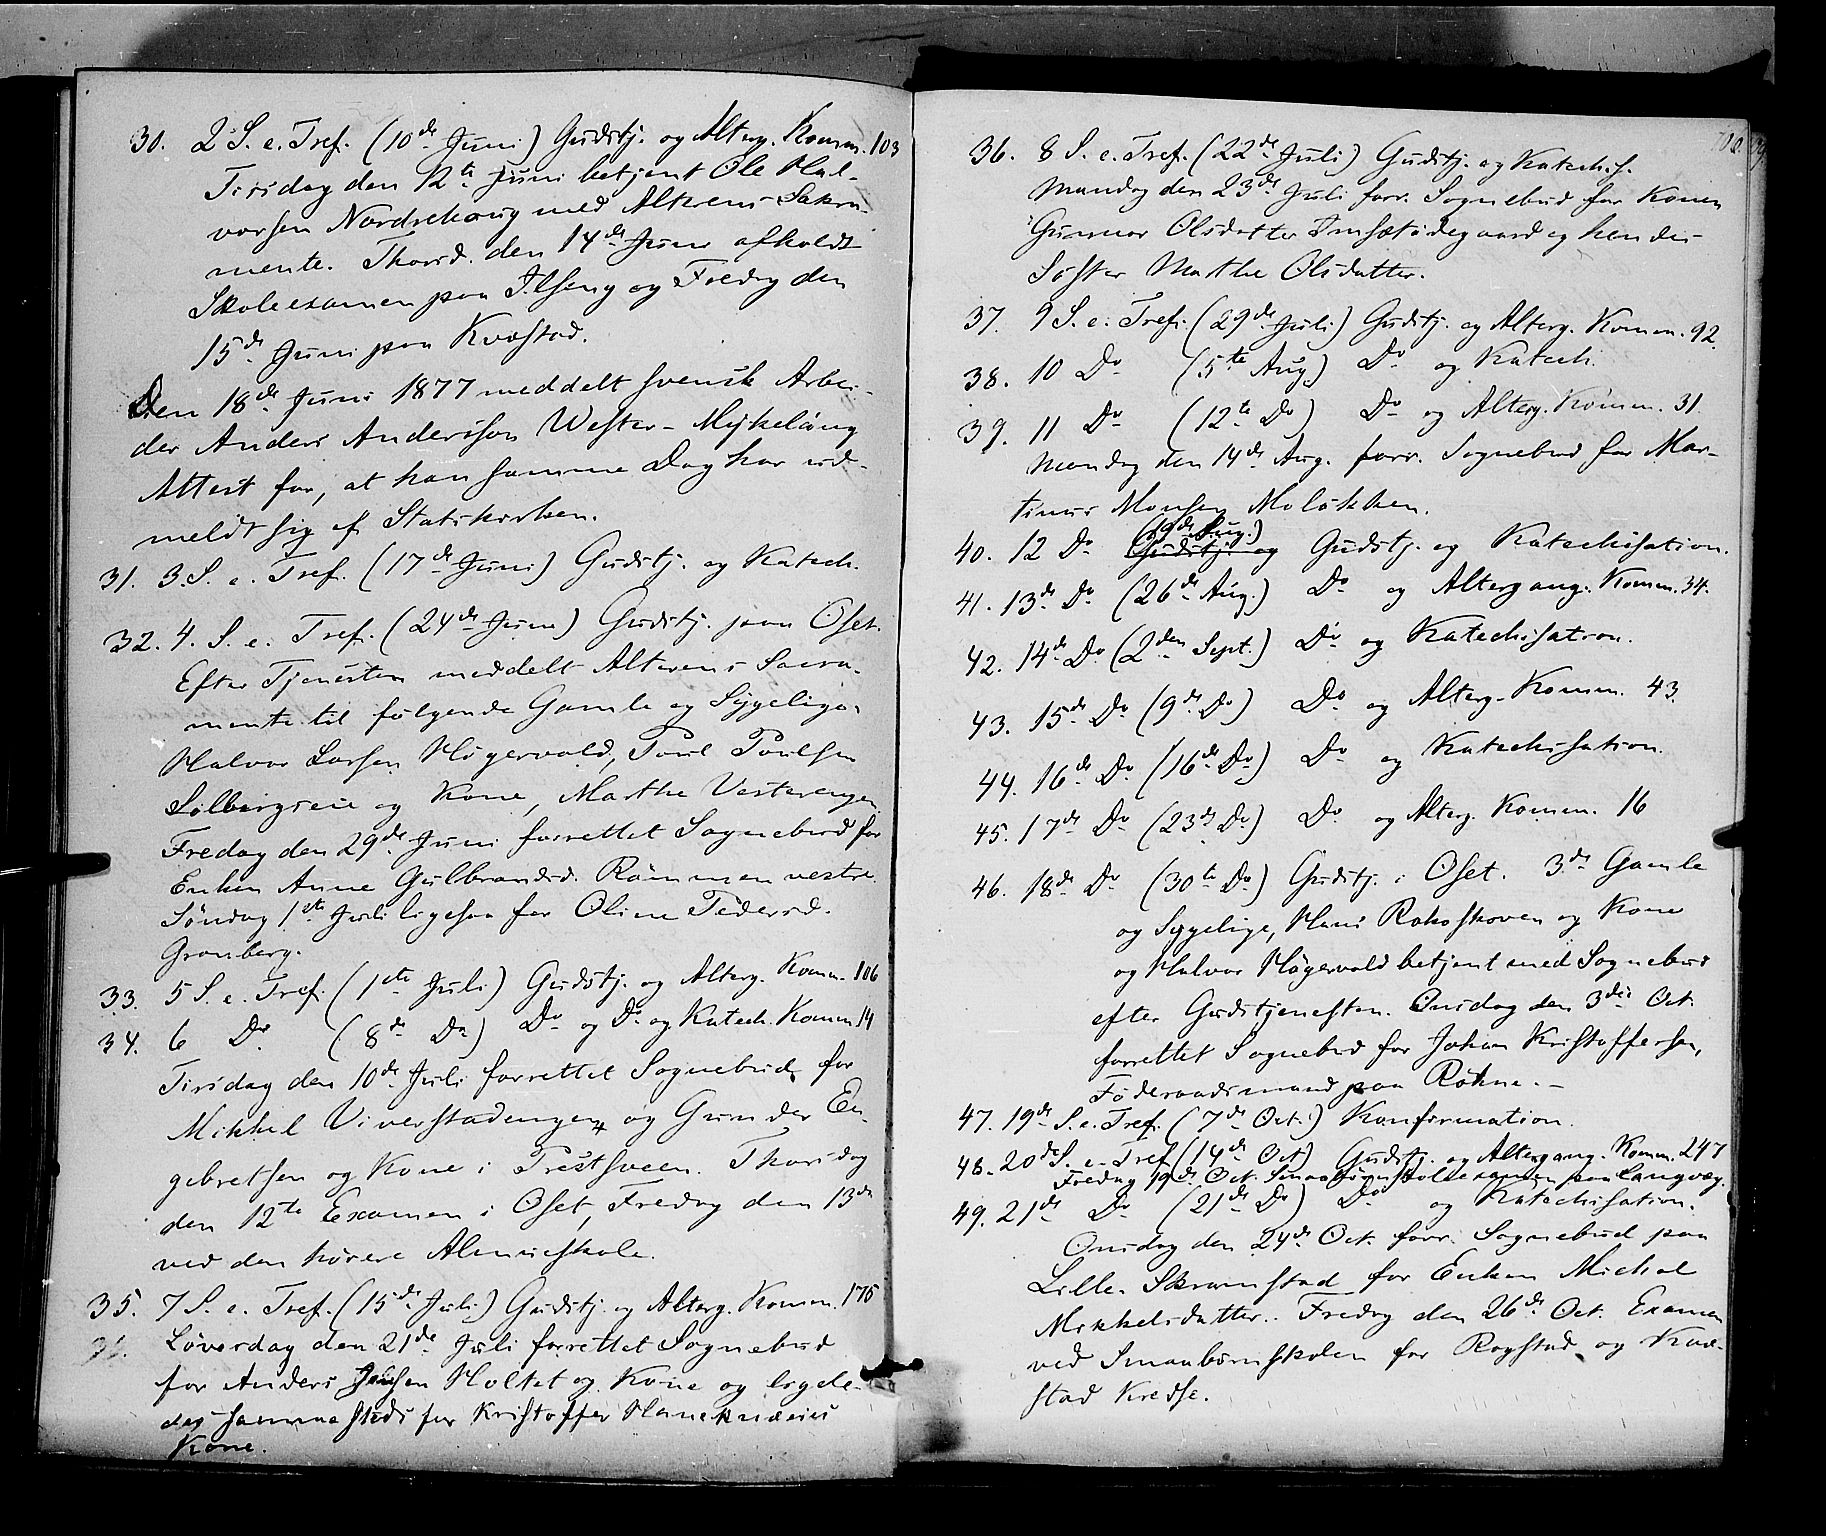 30. 2 S. e. Tref. (10de Juni) Gudstj. og Alterg. Komm. 103
Tirsdag den 12te Juni betjent Ole Hal-
vorsen Nordrehaug med Alterens Sakra-
mente. Thorsd. den 14de Juni afholdt
Skoleexamen paa Ilseng og Fredag den
15de Juni paa Kvæstad.
Den 18de Juni 1877 meddelt svensk Arbei-
der Anders Andersson Wester-Mykeläng
Attest for, at han samme Dag har ud-
meldt sig af Statskirken.
31. 3. S. e. Tref. (17de Juni) Gudstj. og Katech.
32. 4. S. e. Tref. (24de Juni) Gudstj. paa Oset.
Efter Tjenesten meddelt Alterens Sacra-
mente til følgende Gamle og Sygelige:
Halvor Larsen Høgervold, Poul Poulsen
Solbergseie og Kone, Marthe Vesterengen
Fredag den 29de Juni forrettet Sognebud for
Enken Anne Gulbrandsd. Rømmen vestre.
Søndag 1ste Juli ligesaa for Oline Pedersd.
Grønberg.
33. 5 S. e. Tref. (1ste Juli) Gudstj. og Alterg. Komm. 106
34. 6 Do (8de Do) Do og Do og Katech. Komm 14
Tirsdag den 10de Juli forrettet Sognebud for
Mikkel Viverstadengen og Gunder En-
gebretsen og Kone i Prestsveen. Thorsdag
den 12te Examen i Oset, Fredag den 13de
ved den høiere Almueskole.
35. 7 S. e. Tref. (15de Juli) Gudstj. og Alterg. Komm. 175
36. Løverdag den 21de Juli forrettet Sognebud
for Anders Jensen Holtet og Kone og ligele-
des sammesteds for Kristoffer Haneknæeies
Kone.
100.
36. 8 S. e. Tref. (22de Juli) Gudstj. og Katechis.
Mandag den 23de Juli forr. Sognebud for Konen
Gunnor Olsdatter Imsætødegaard og hendes
Søster Marthe Olsdatter.
37. 9 S. e. Tref. (29de Juli) Gudstj. og Alterg. Komm. 92.
38. 10 Do (5te Aug) Do og Katech.
39. 11 Do (12te Do) Do og Alterg. Komm. 31.
Mandag den 14de Aug. forr. Sognebud for Mar-
tinus Monsen Moløkken.
(19de Aug.)
40. 12 Do Gudstj. og Gudstj. og Katechisation.
41. 13de Do (26de Aug.) Do og Altergang. Komm. 34.
42. 14de Do (2den Sept.) Do og Katechisation.
43. 15de Do (9de Do) Do og Alterg. Komm. 43.
44. 16de Do (16de Do) Do og Katechisation.
45. 17de Do (23de Do) Do og Alterg. Komm. 16
46. 18de Do (30te Do) Gudstj. i Oset. 3de Gamle
og Sygelige, Hans Rokoskoven og Kone
og Halvor Høgervold betjent med Sognebud
efter Gudstjenesten. Onsdag den 3die Oct.
forrettet Sognebud for Johan Kristoffersen,
Føderaadsmand paa Røhne. –
47. 19de S. e. Tref. (7de Oct.) Konfirmation.
48. 20de S. e. Tref (14de Oct) Gudstj. og Altergang. Komm. 247
Fredag 19de Oct. Smaabørnskoleexamen paa Langvæg.
49. 21de Do (21de Do) Do og Katechisation.
Onsdag den 24de Oct. forr. Sognebud paa
Lille-Skramstad for Enken Michel
Mikkelsdatter. Fredag den 26de Oct. Examen
ved Smaabørnskolen for Rogstad og Kvæ-
stad Kredse.